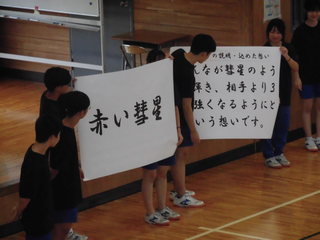 赤い彗星
の説明・込めた想い
んなが彗星のよう
輝き、相手より3
強くなるようにと
いう想いです。